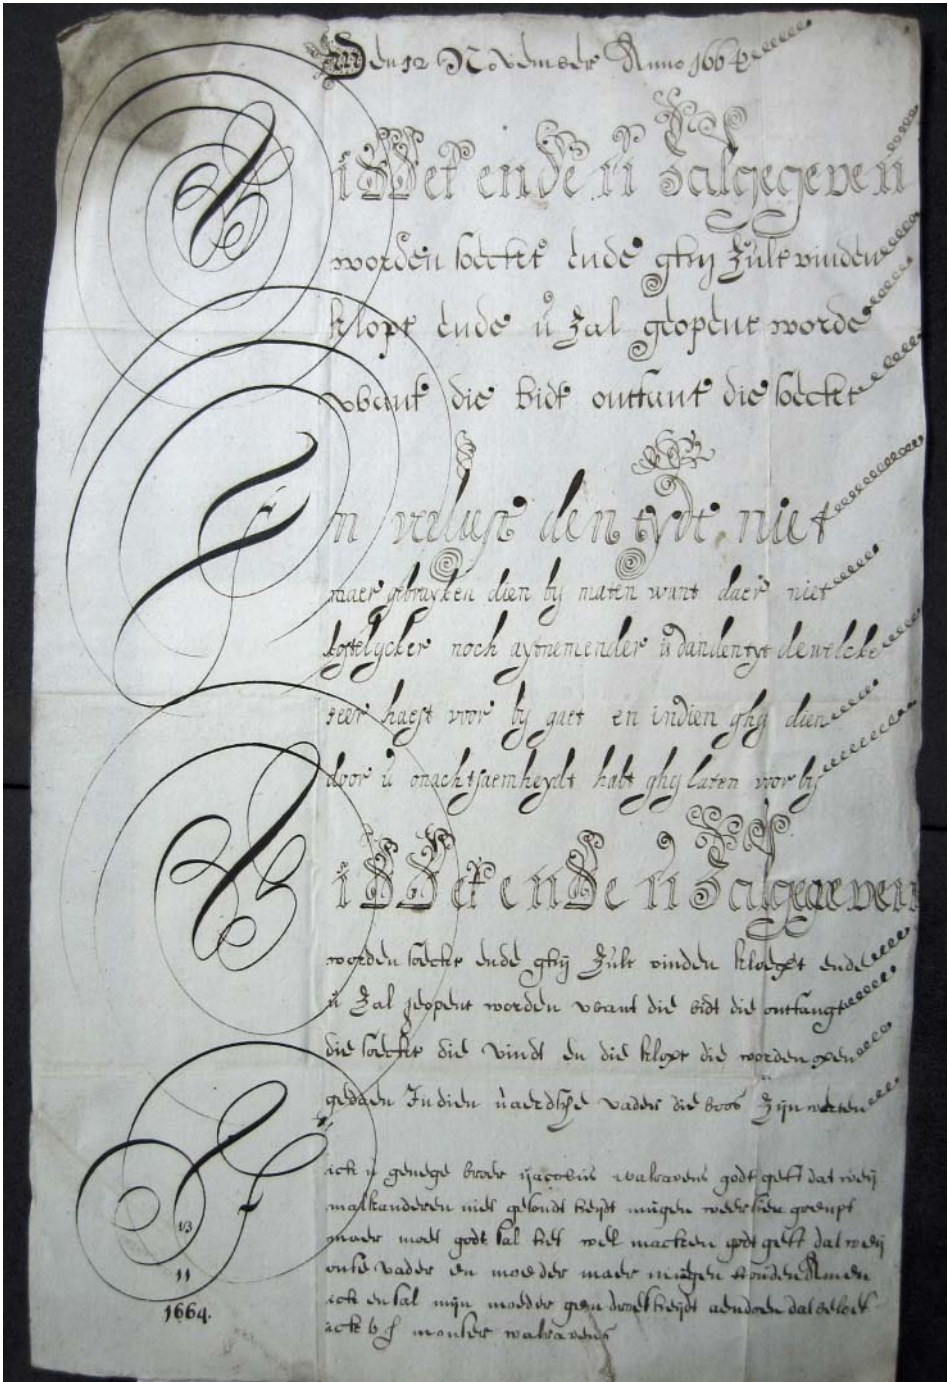 Den 12 November Anno 1664
Biddet ende u zal gegeven
worden soecket ende ghy zult vinden
klopt ende u zal geopent worde
want die bidt ontfant die soecket
En verlust den tydt niet
maer gebruyken dien by maten want daer niet
kostelycker noch uytnemender u dan den tyt dewelcke
seer haest voor by gaet en indien ghy dien
door u onachtsaemheydt habt ghy laten voor by
Biddet ende u zal gegeven
worden soeckt ende ghy zult vinden kloept ende
u zal geopent worden want die bidt die ontfangt
die soeckt die vindt en die klopt die worden open
gedaen Indien u aerdtse vader die boos zyn weten
ick u genege broer yacobus walravens godt geft dat wey
malkanderen niet gesondt heydt mugen weer sien
maer moet godt sal het wel macken godt geft dat wey
onse vader en moeder maer mugen houden Amen
ick en sal myn moeder geen droefheydt aendoen dat beloof
ick monser walravens
13
11
1664.